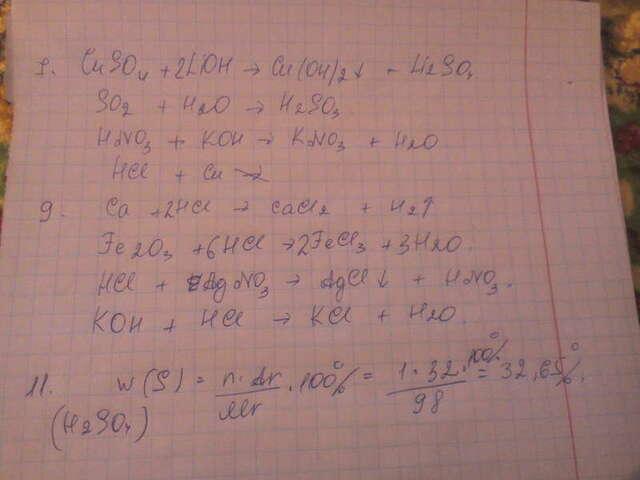 1. CuSO4 + 2LiOH → Cu(OH)2↓ - Li2SO4
SO2 + H2O → H2SO3.
HNO3 + KOH → KNO3 + H2O
HCl + Cu ↛
9. Ca + 2HCl → CaCl2 + H2↑
Fe2O3 + 6HCl → 2FeCl3 + 3H2O.
HCl + AgNO3 → AgCl↓ + HNO3.
KOH + HCl → KCl + H2O.
11. W(S) = n·Ar/Mr · 100% = 1·32·100%/98 = 32,65%.
(H2SO4)